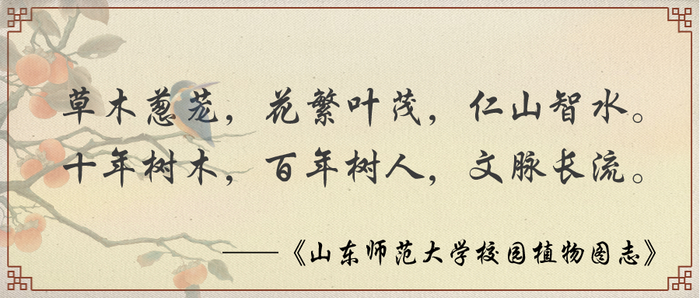 草木葱茏，花繁叶茂，仁山智水。
十年树木，百年树人，文脉长流。
——《山东师范大学校园植物图志》